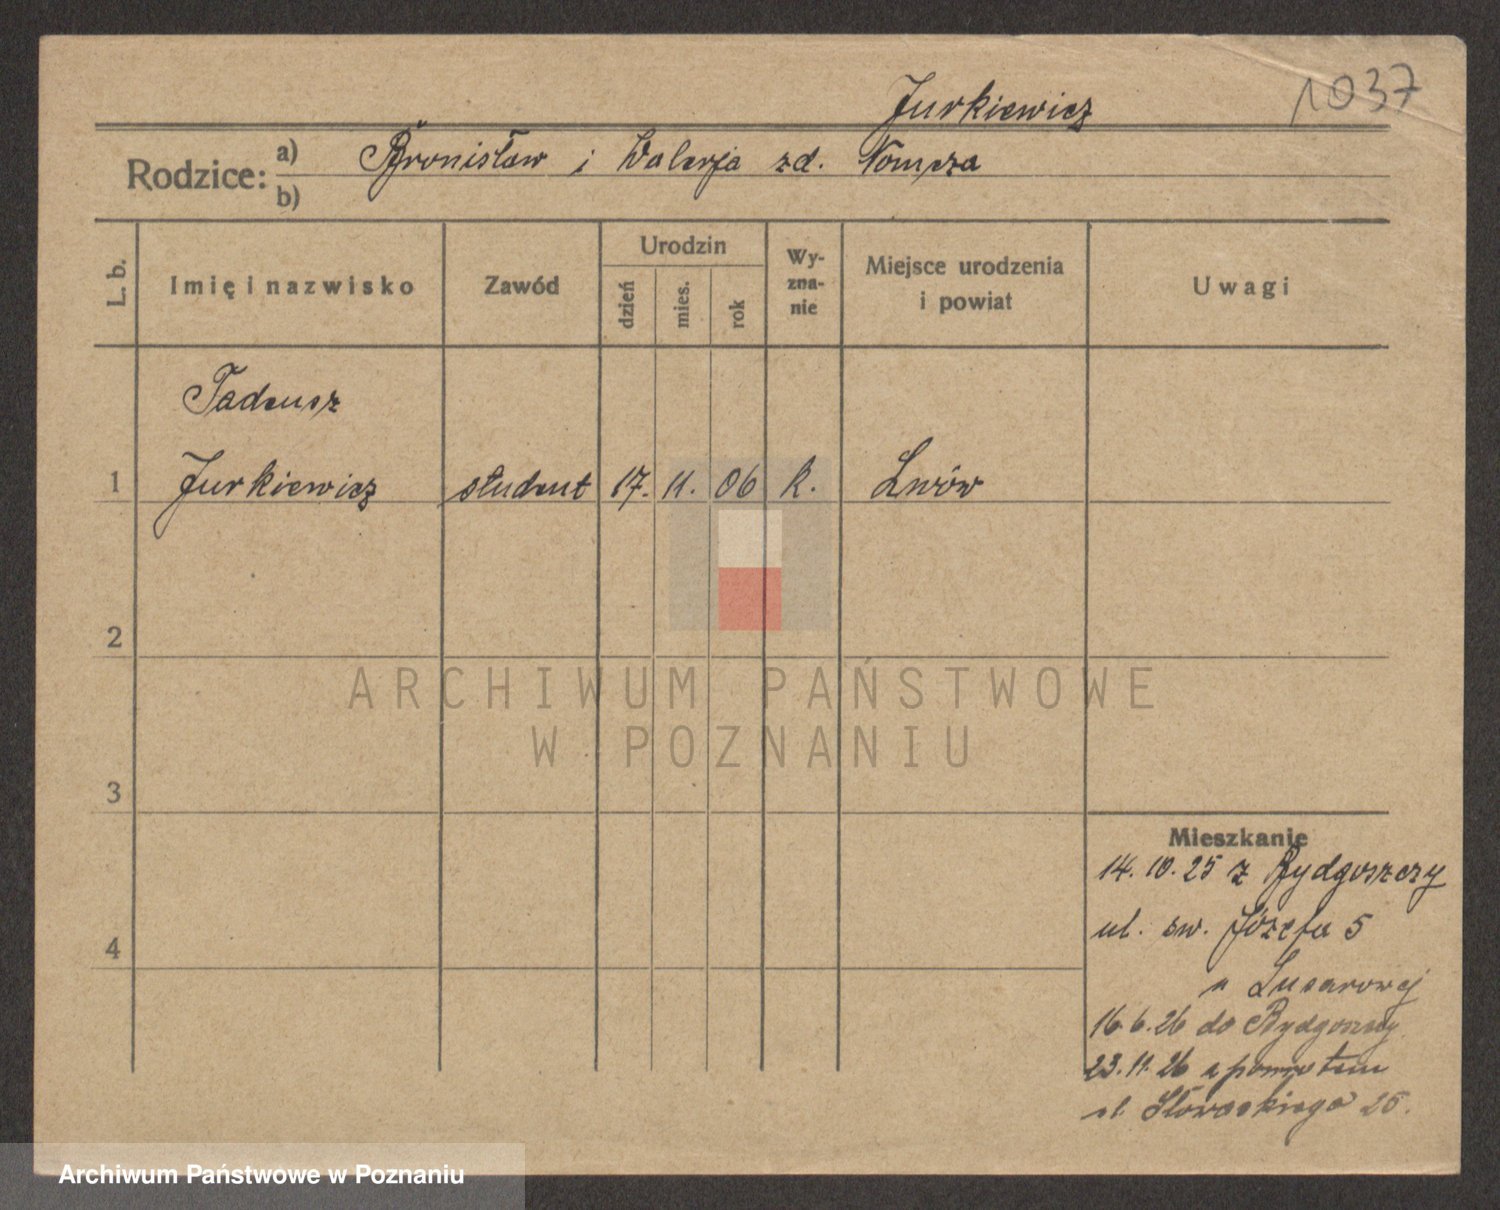 1037
Jurkiewicz
Rodzice: a) Bronisław i Walerja zd. Nomeza
b)
L. b.
Imię i nazwisko
Zawód
Urodzin
dzień
mies.
rok
Wy-
zna-
nie
Miejsce urodzenia
i powiat
Uwagi
Tadeusz
1 Jurkiewicz student 17. 11. 06 k. Lwów
2
3
4
Mieszkanie
14. 10. 25 z Bydgoszczy
ul. sw. Józefa 5
u
16 6. 26 do Bydgoszczy
23. 11. 26 z powrotem
ul. Słowackiego 25.
ARCHIWUM PAŃSTWOWE
W POZNANIU
Archiwum Państwowe w Poznaniu